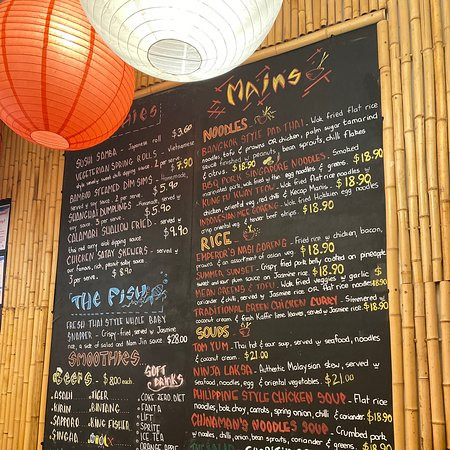 SUSHI SAMBA - Japanese roll $3.60
VEGETERIAN SPRING ROLLS - Vietnamese
style served sweet chilli dipping sauce 2 per serve $7.90
BAMBAM STEAMED DIM SIMS - Homemade,
served w/ soy sauce 2 per serve $5.90
SHANGHAI DUMPLINGS - Homemade, served w/
soy sauce 3 per serve $5.90
CALAMARI SWALLOW FRIED - served w/
thai nid curry aioli dipping sauce $9.90
CHICKEN SATAY SKEWERS - served w/
our famous, rich, peanut satay sauce
3 per serve $8.90
THE FISH
FRESH THAI STYLE WHOLE BABY
SNAPPER - Crispy-fried served w/ Jasmine
rice, a side of salad and Nam Jim sauce $28.00
SMOOTHIES
BEERS - $8.00 each
- ASAHI - TIGER
- KIRIN - BINTANG
- SAPPORO - KING FISHER
- SINGHA
SOFT
DRINKS
COKE ZERO DIET
- FANTA
- LIFT
- SPRITE
- ICE TEA
- ORANGE APPLE
MAINS
NOODLES
BANGKOK STYLE PAD THAI - Wok fried flat rice
noodles, tofu & prawns OR chicken, palm sugar tamarind
sauce finished w/ peanuts, bean sprouts, chilli flakes
& citrus $18.90
BBQ PORK SINGAPORE NOODLES - Smokey
marinated pork, wok fried w/ thin egg noodles & greens $18.90
KUNG FU KWAY TEOW - Wok fried flat rice noodles w/
chicken, oriental veg, red chilli & Kecap Manis $18.90
INDONESIAN MEE GORENG - Wok fried Hokkien egg noodles
crisp oriental veg & tender beef strips $18.90
RICE
EMPEROR'S NASI GORENG - Fried rice w/ chicken, bacon,
prawns & an assortment of asian veg $18.90
SUMMER SUNSET - Crispy fried pork belly coated on pineapple
sweet and sour plum sauce on Jasmine rice $18.90
MEAN GREENS & TOFU - Wok fried veggies w/ garlic
coriander & chilli, served w/ Jasmine rice OR flat rice noodles $18.90
TRADITIONAL GREEN CHICKEN CURRY - Simmered w/
coconut cream & fresh Kaffir lime leaves, served w/ Jasmine rice $18.90
SOUPS
TOM YUM - Thai hot & sour soup, served w/ seafood, noodles
& coconut cream $21.00
NINJA LAKSA - Authentic Malaysian stew, served w/
seafood, noodles, egg & oriental vegetables $21.00
PHILIPPINE STYLE CHICKEN SOUP - Flat rice
noodles, bok choy, carrots, spring onion, chilli & coriander $18.90
CHINAMAN'S NOODLES SOUP - Crumbed pork,
w/ noodles, chilli, onion, bean sprouts, coriander & greens $18.90